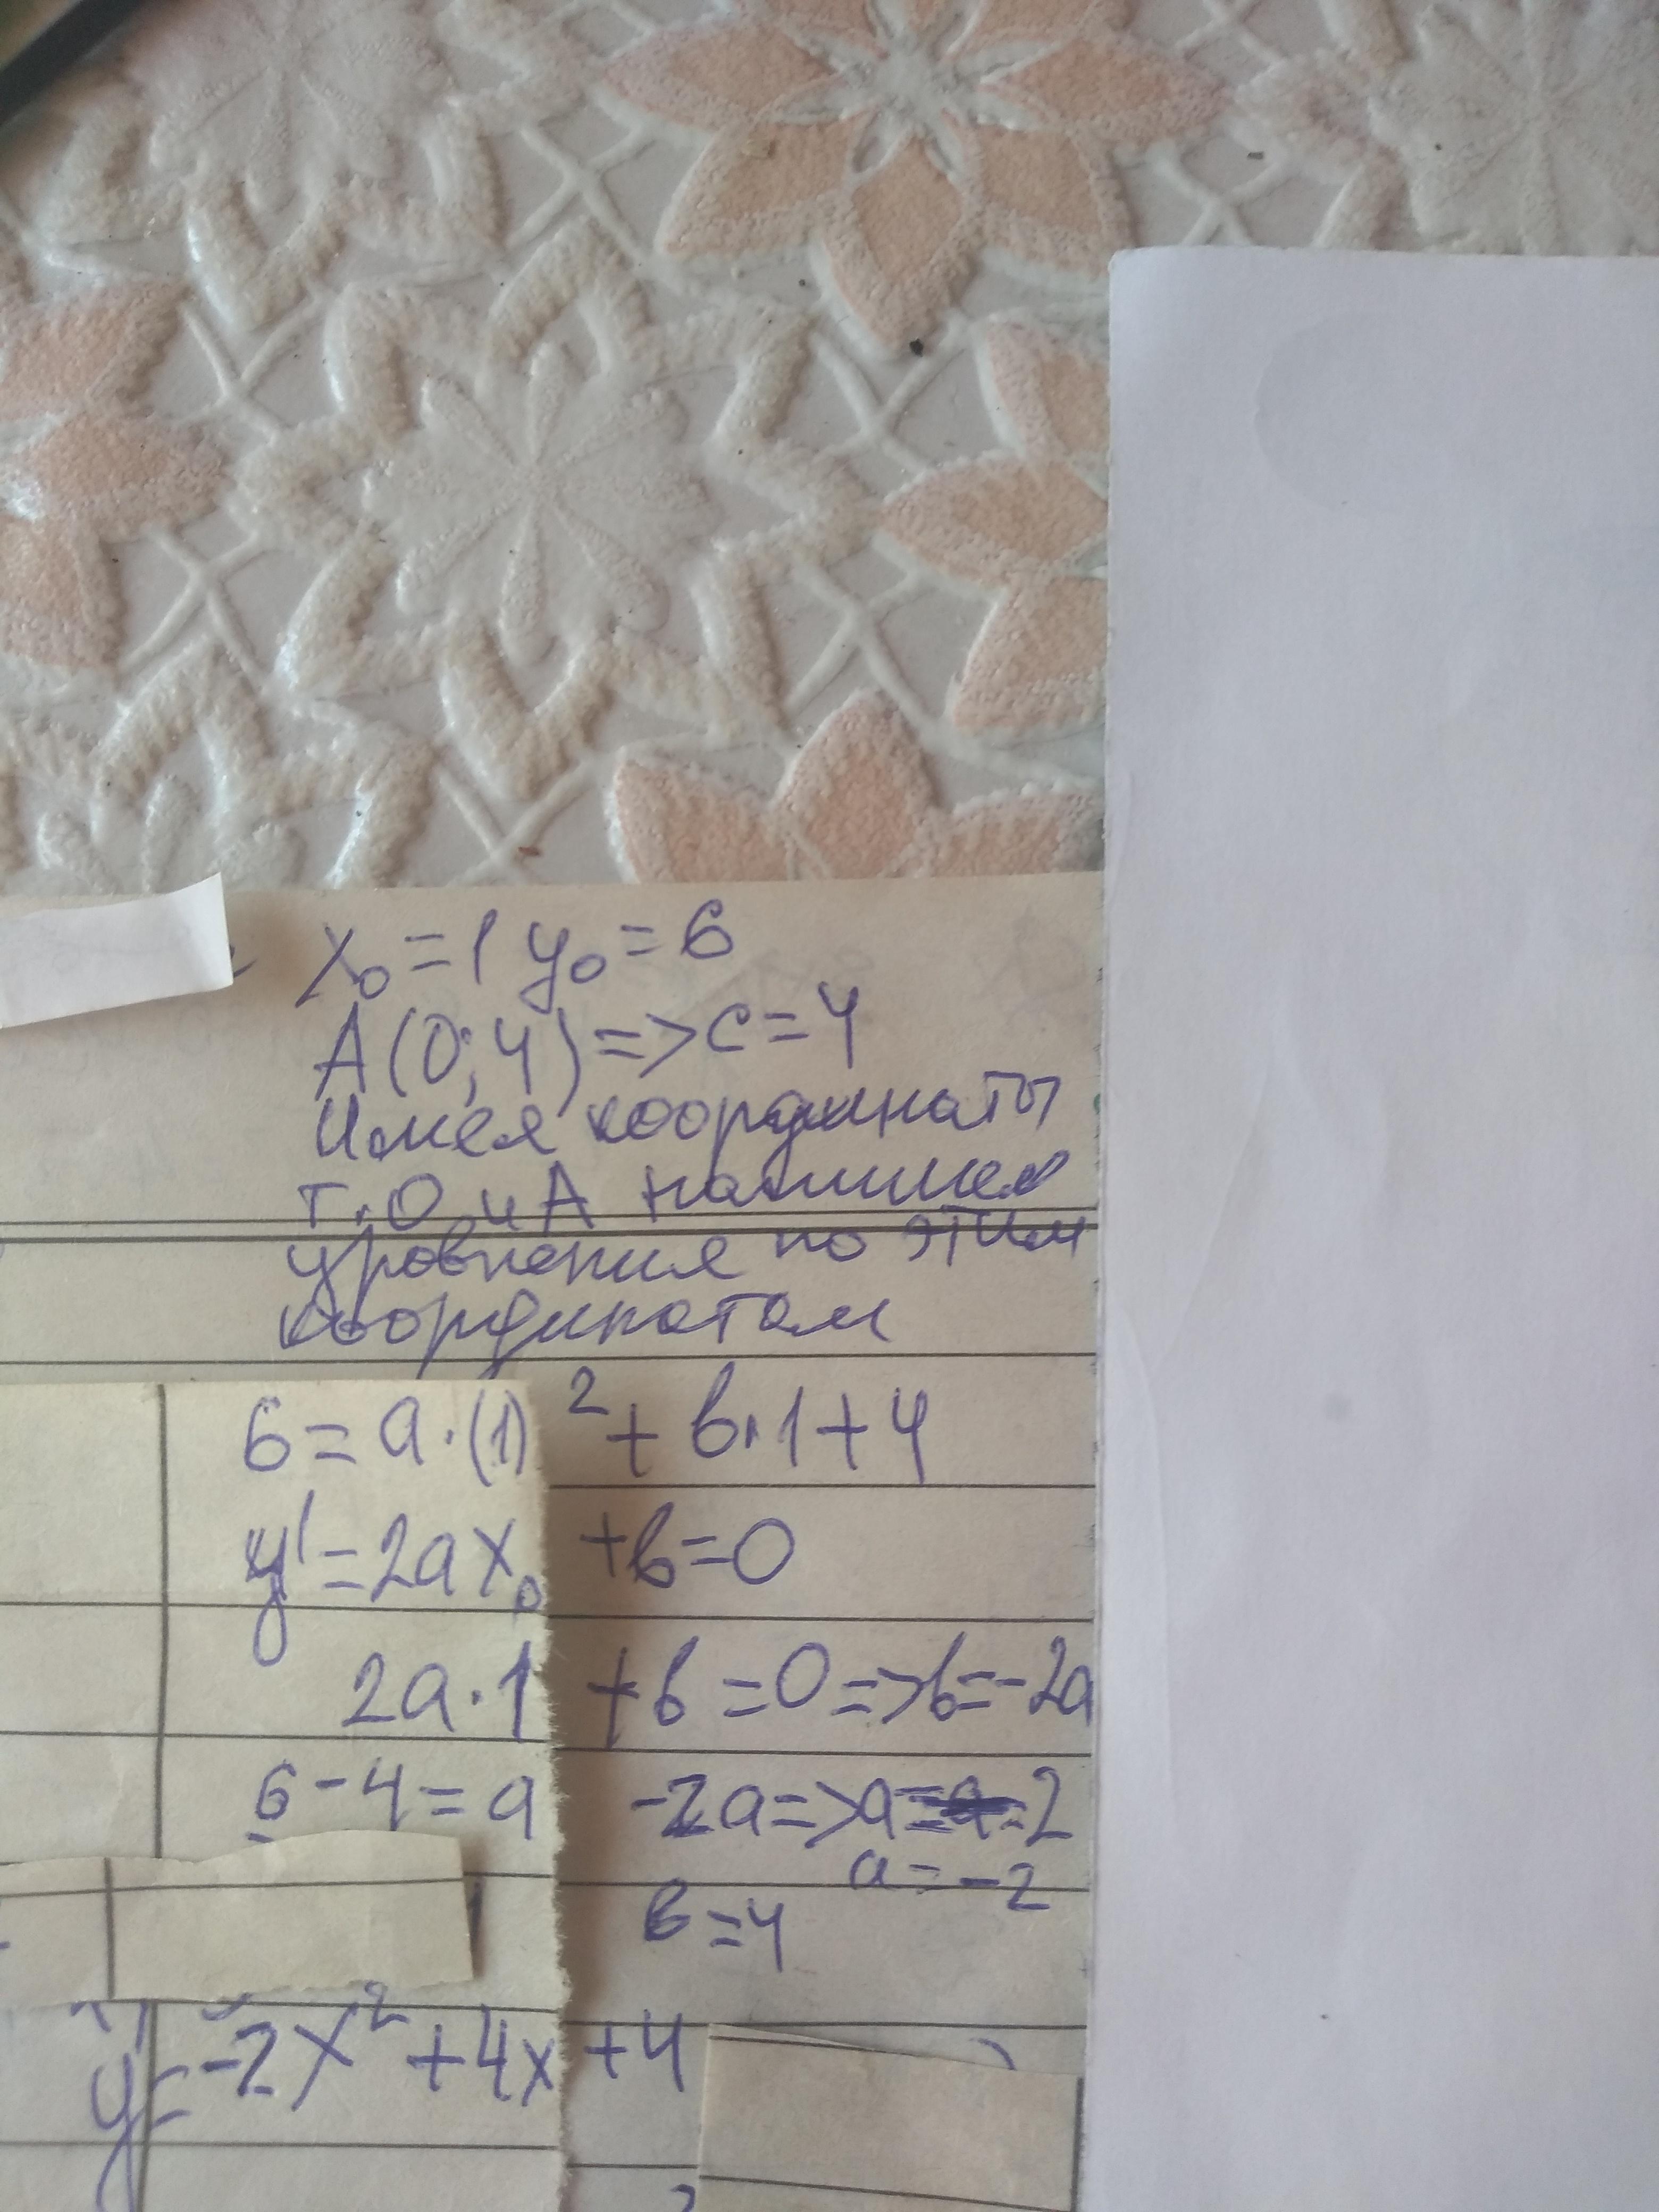 x₀=1 y₀=6
A(0;4)=>c=4
Имея координаты
т.О и А напишем
уровнения по этим
координатам
6=a·(1)²+в·1+4
y'=2ax₀+в=0
2a·1+в=0=>в=-2a
6-4=a-2a=>a=-2
a=-2
в=4
y=-2x²+4x+4